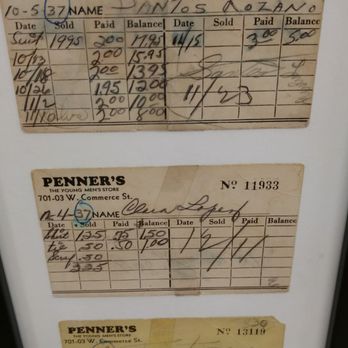 10-5-37 NAME SANTOS LOZANO
Date Sold Paid Balance Date Sold Paid Balance
Suit 19.95 2.00 17.95 11/15 3.00 5.00
10/12 2.00 15.95
10/18 2.00 13.95
10/26 1.95 12.00 11/23
11/2 2.00 10.00
11/10 2.00 8.00
PENNER'S
THE YOUNG MEN'S STORE
701-03 W. Commerce St.
Nº 11933
12-4-37 NAME
Date Sold Paid Balance Date Sold Paid Balance
Shirt 1.25 .75 1.50
tie .50 .50 1.00
.50
2.25
PENNER'S
THE YOUNG MEN'S STORE
701-03 W. Commerce St.
Nº 13119